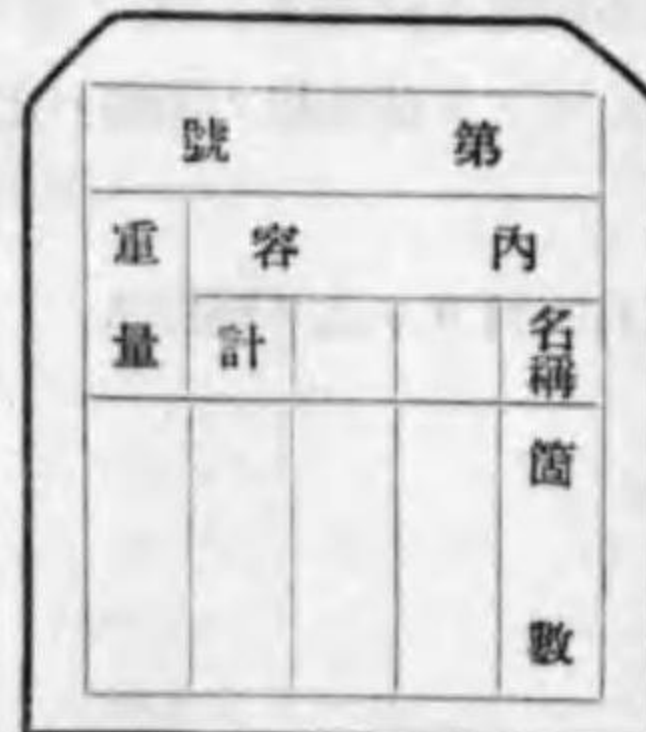 第號
內容
重量
名稱
計
箇數